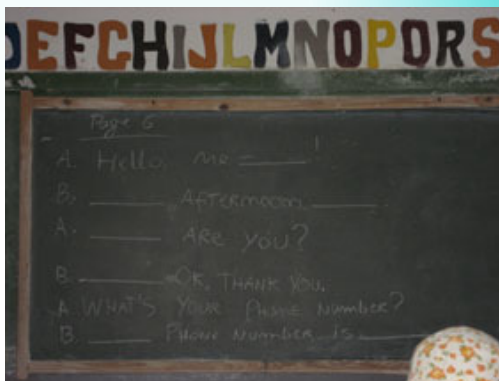 DEFGHIJLMNOPQRS
Page 6
A. Hello, me _____!
B. _____ AFTERNOON _____.
A. _____ ARE YOU?
B. _____ OK, THANK YOU.
A WHAT'S YOUR PHONE NUMBER?
B _____ PHONE NUMBER is _____